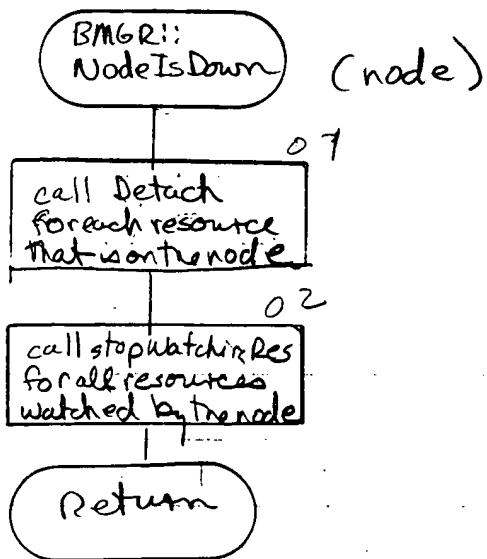 BMGR::
NodeIsDown
(node)
01
call Detach
for each resource
that is on the node
02
call stopWatchingRes
for all resources
watched by the node
Return